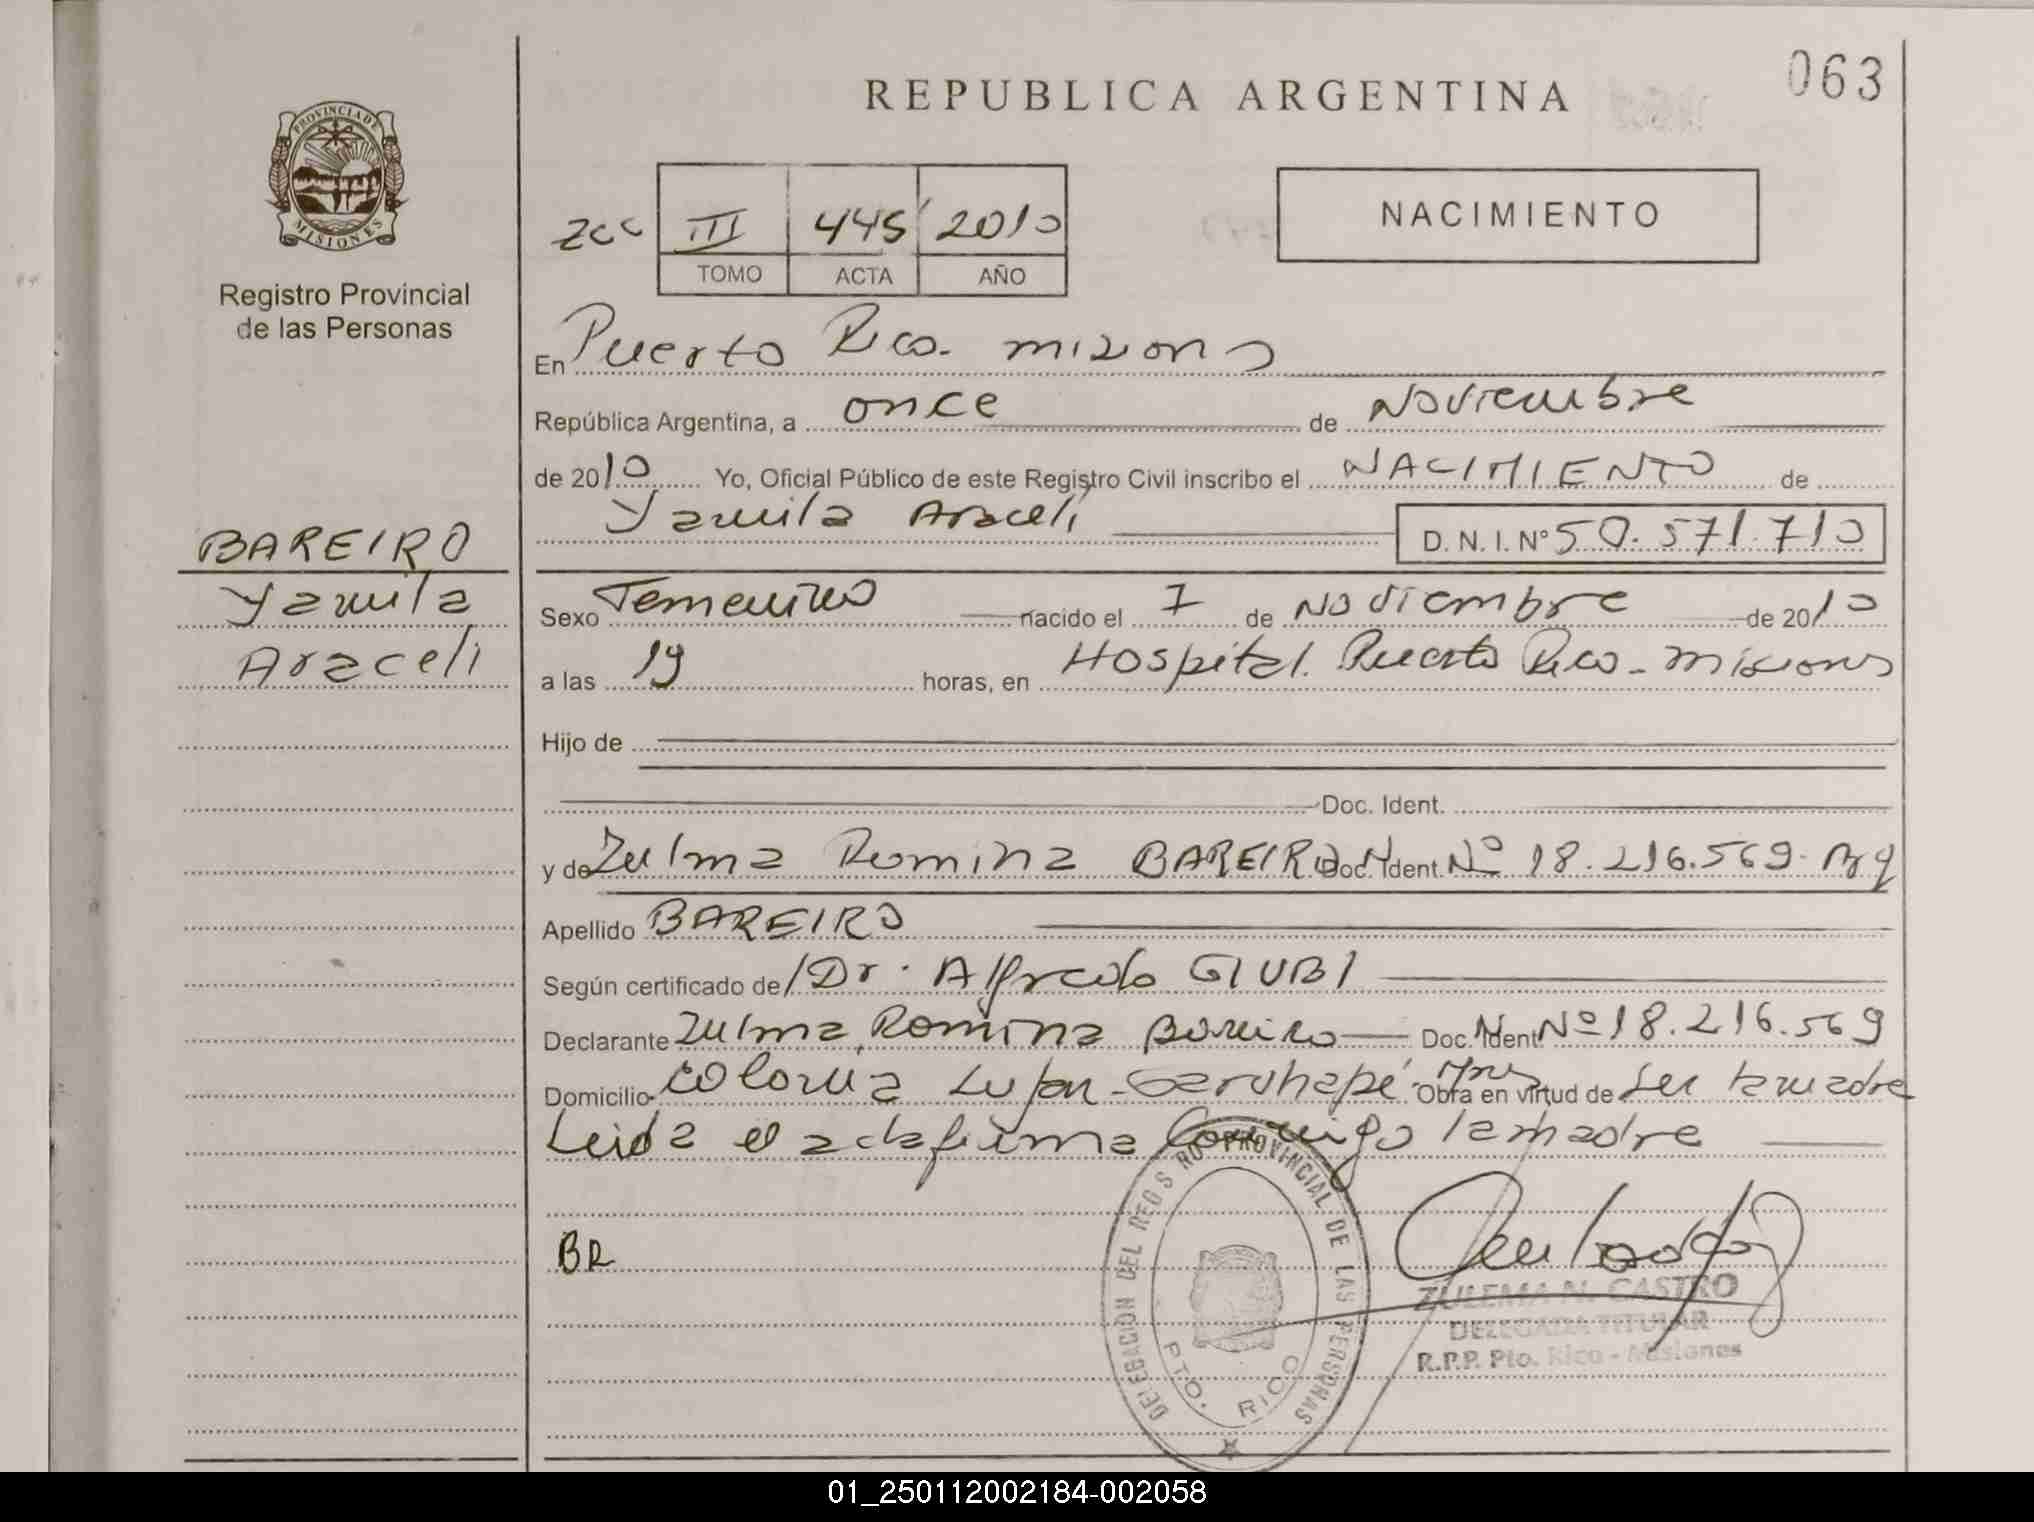 REPUBLICA ARGENTINA
063
PROVINCIA DE
MISIONES
Registro Provincial
de las Personas
III 445 2010
TOMO ACTA AÑO
NACIMIENTO
En Puerto Rico. misiones
República Argentina, a once de Noviembre
de 2010 Yo, Oficial Público de este Registro Civil inscribo el NACIMIENTO de
Yamila Araceli D. N. I. Nº 50.571.710
BAREIRO
Yamila
Araceli
Sexo Femenino nacido el 7 de Noviembre de 2010
a las 19 horas, en Hospital. Puerto Rico - misiones
Hijo de
Doc. Ident.
y de Zulma Romina BAREIRO Doc. Ident. Nº 18.216.569. Arg
Apellido BAREIRO
Según certificado de Dr. Alfredo GIUBI
Declarante Zulma Romina Bareiro Doc. Ident Nº 18.216.569
Domicilio Colonia Lujan - Garuhapé. Mns Obra en virtud de ser la madre
Leida el acta firma Conmigo la madre
BR
DELEGACION DEL REGISTRO PROVINCIAL DE LAS PERSONAS
PTO. RICO
ZULEMA N. CASTRO
DELEGADA TITULAR
R.P.P. Pto. Rico - Misiones
01_250112002184-002058